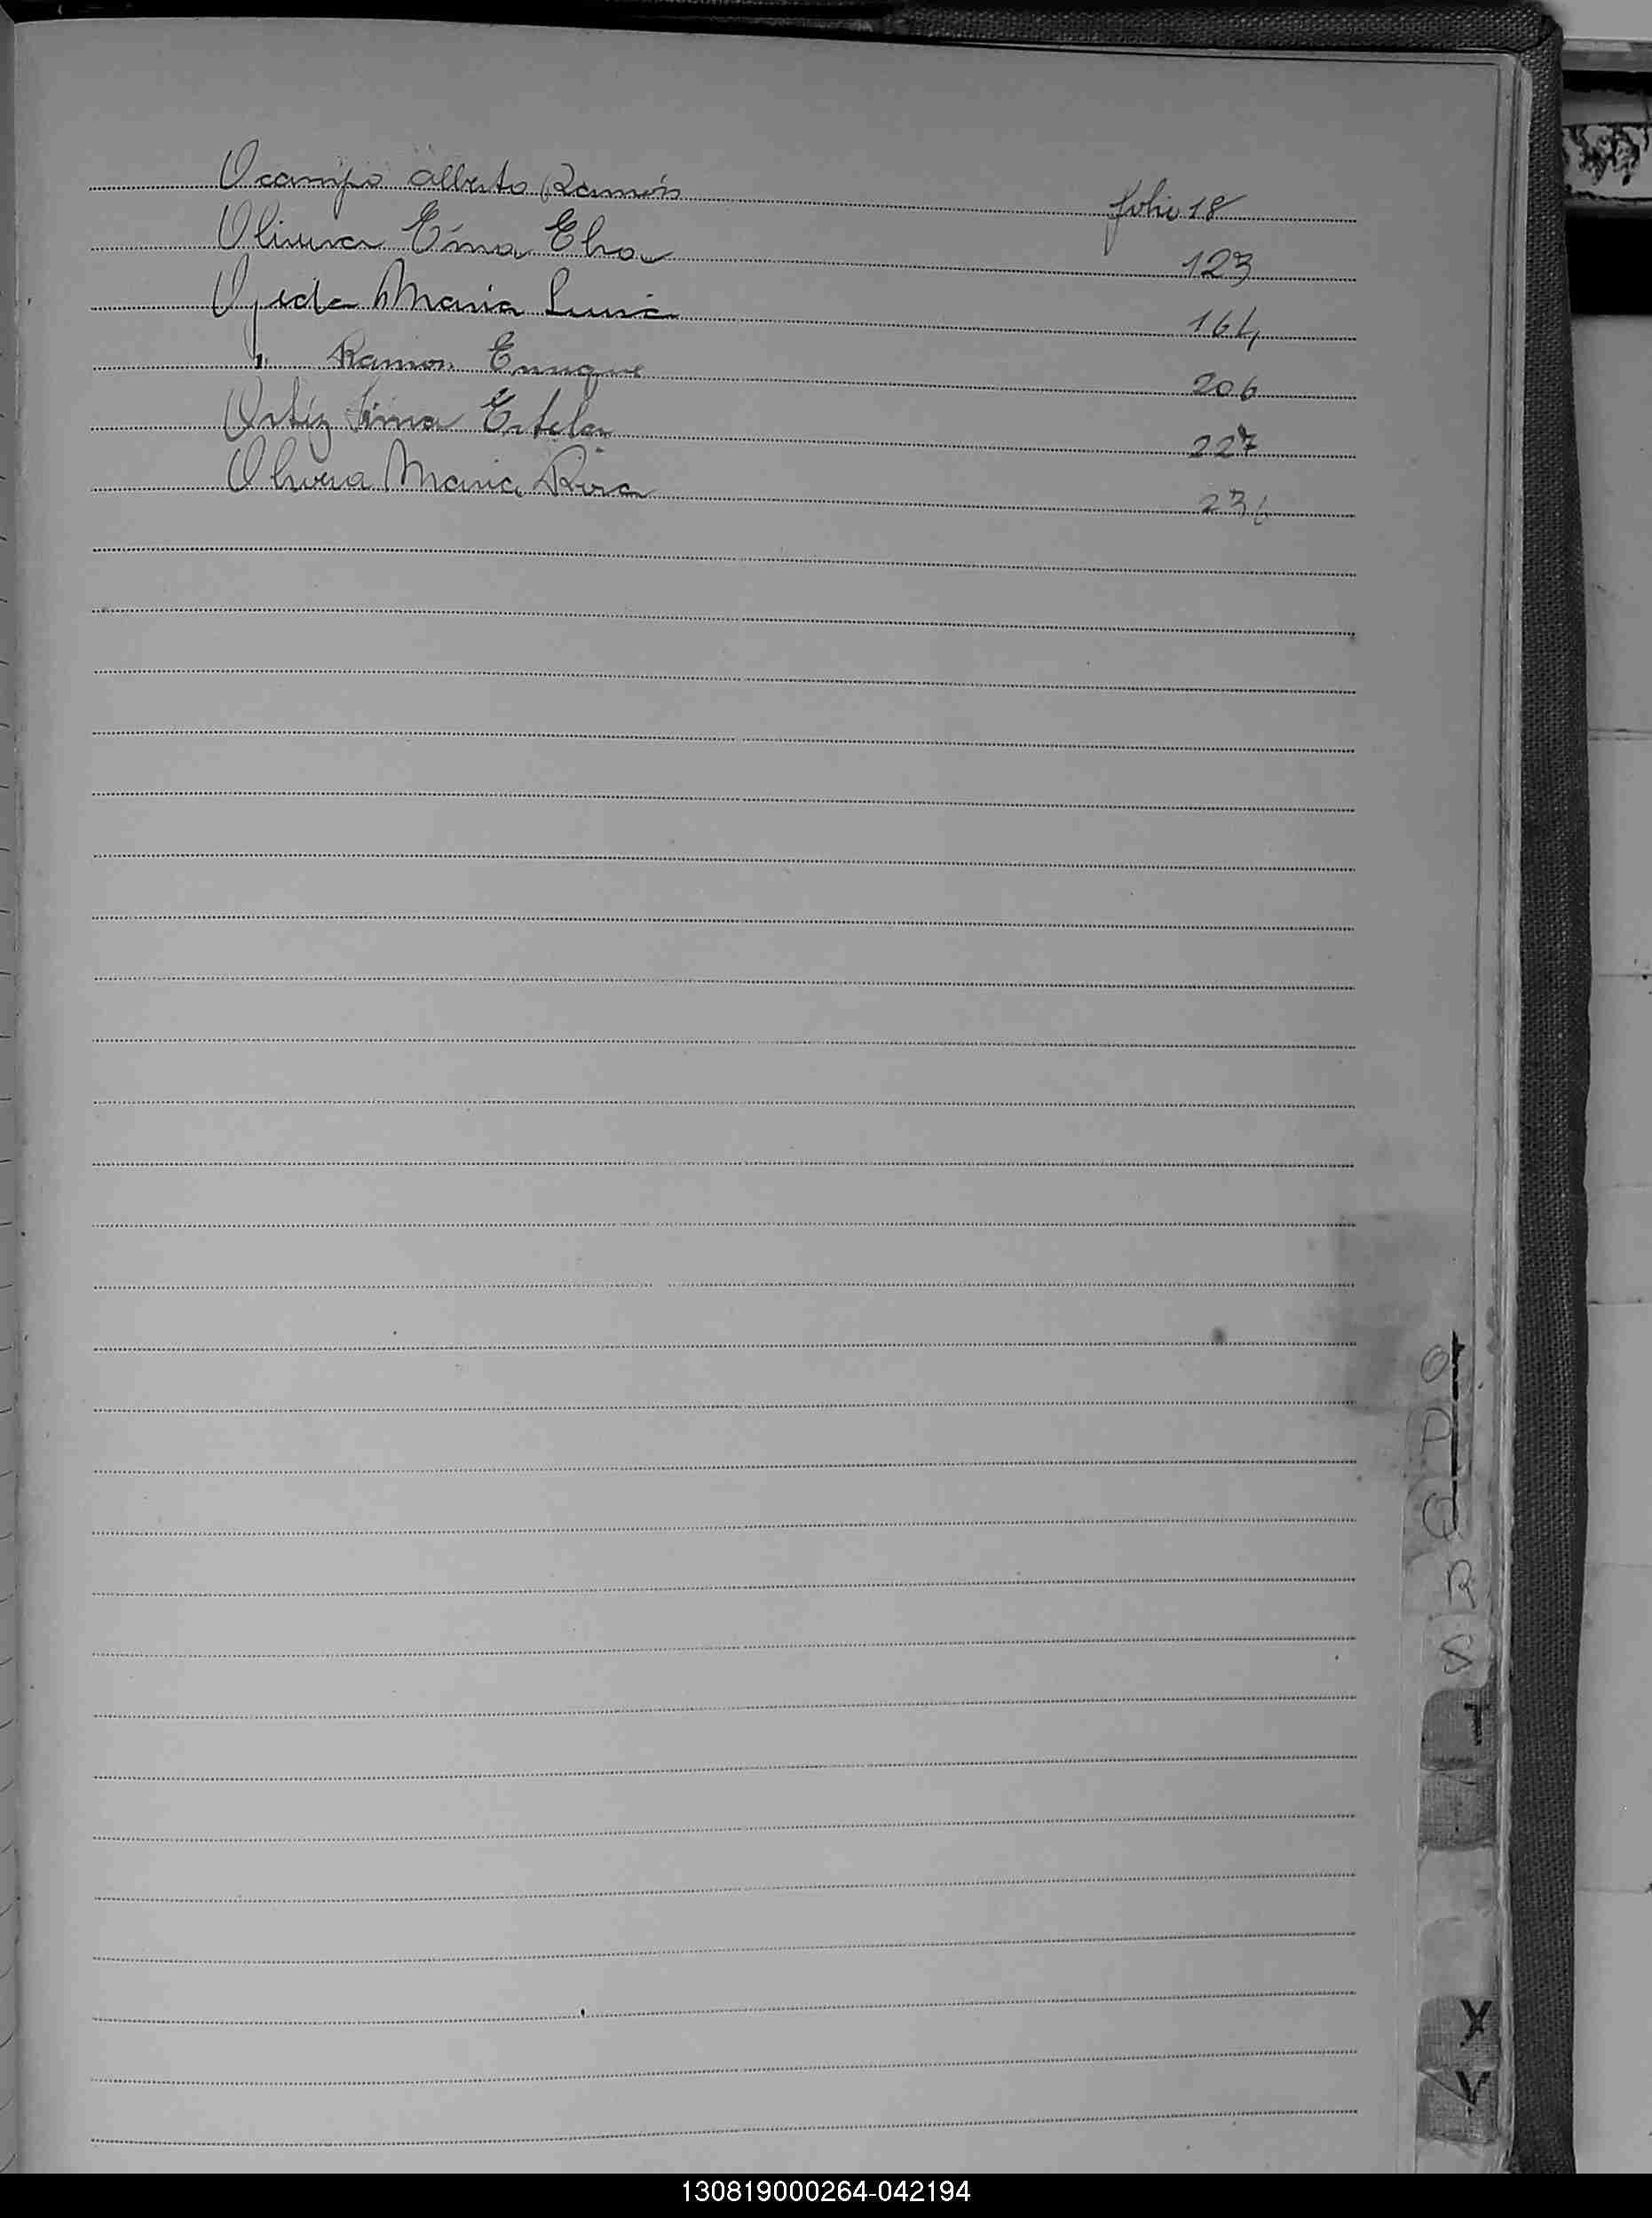 Ocampo Alberto Ramón folio 18
Olivera Ema Elva 123
Ojeda Maria Luisa 164
" Ramon Enrique 206
Ortiz Estela 227
Olivera Maria Rosa 236
O
P
Q
R
S
T
X
Y
130819000264-042194